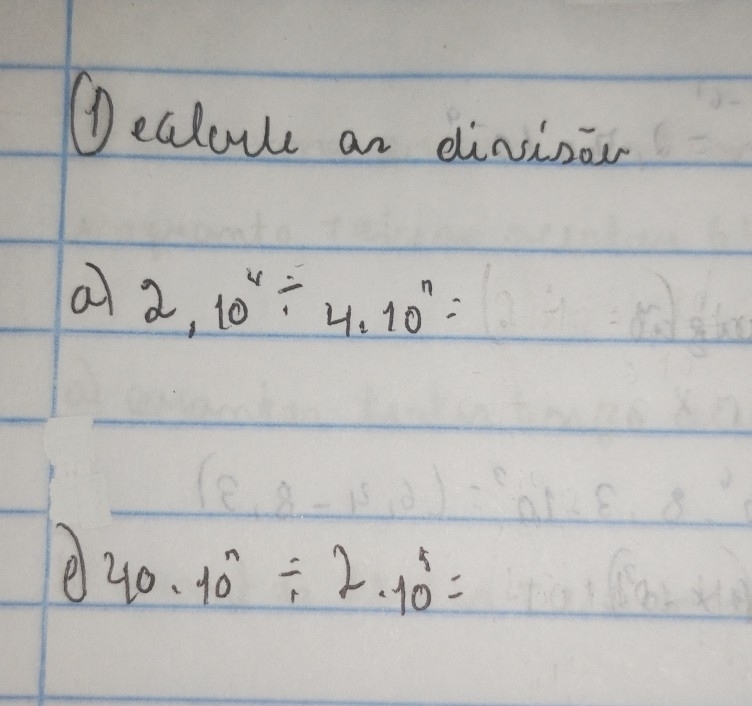 ① calcule as divisões
a) 2,10⁴ ÷ 4.10ⁿ =
e) 40.10ⁿ ÷ 2.10⁵ =